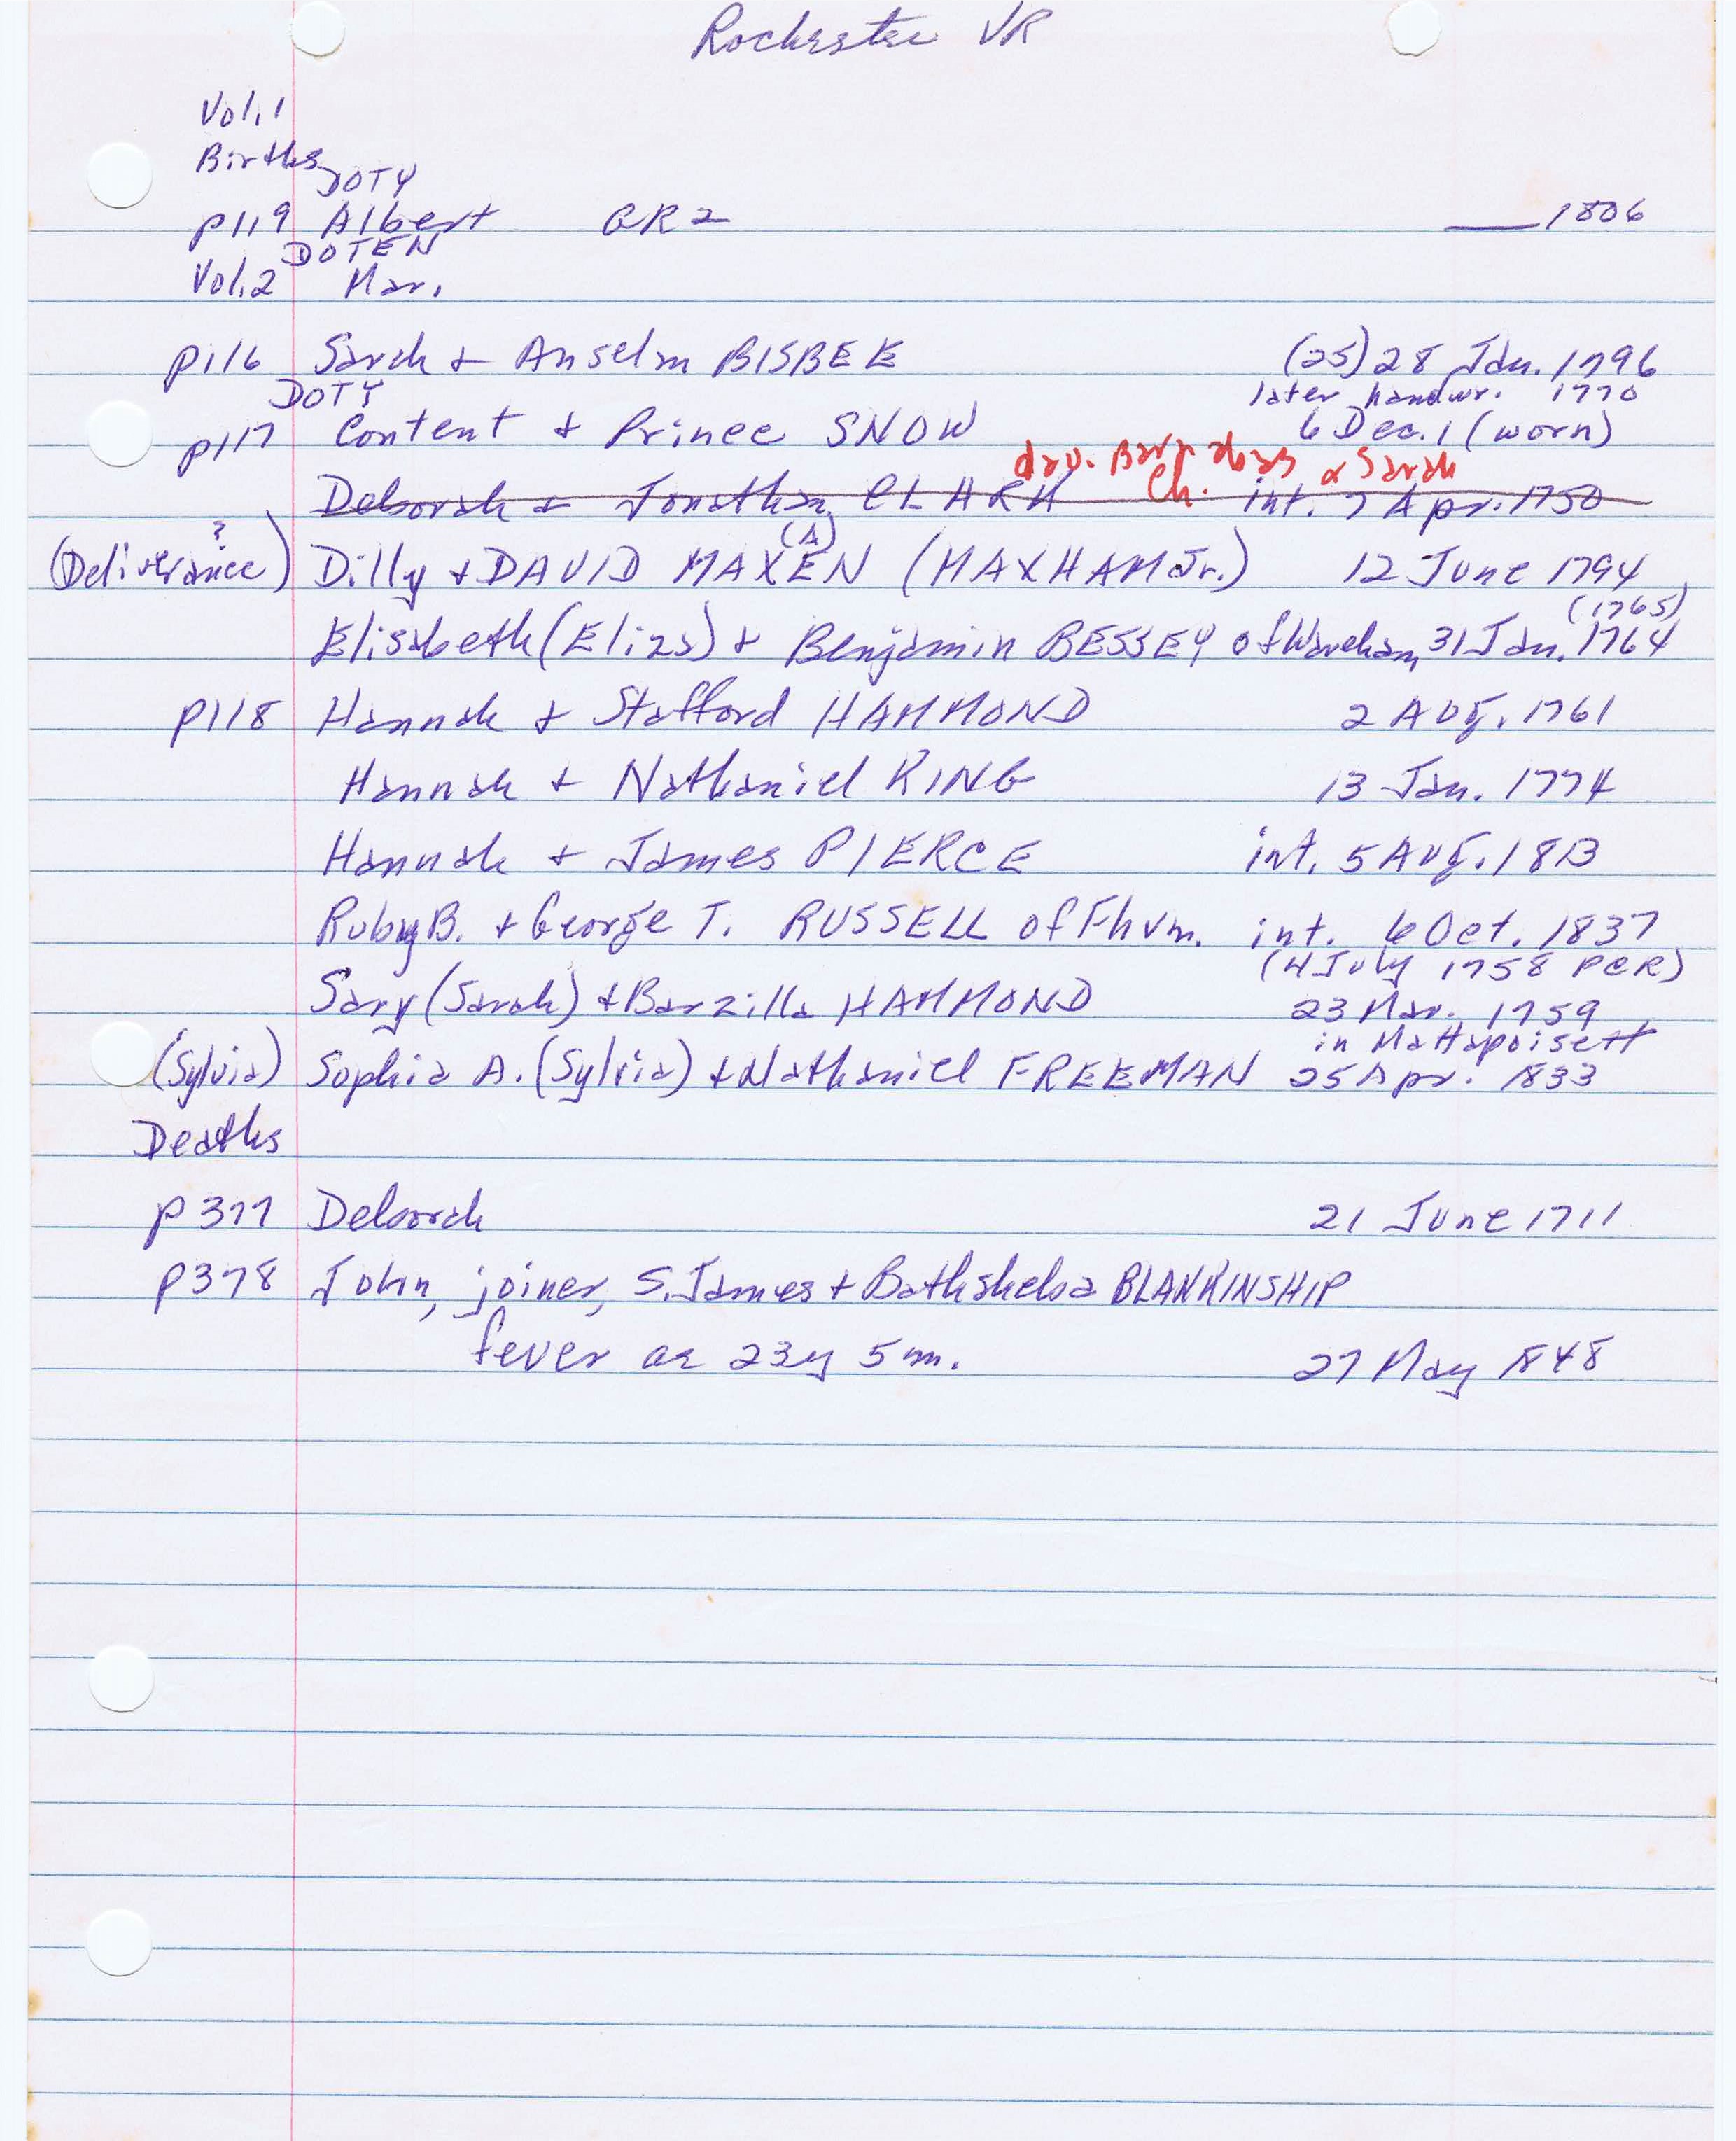 Rochester VR
Vol. 1
Births
DOTY
p119 Albert GR2 ___ 1806
DOTEN
Vol. 2 Mar.
p116 Sarah + Anselm BISBEE (25) 28 Jan. 1796
DOTY later handwr. 1770
p117 Content + Prince SNOW 6 Dec. 1 (worn)
dau. Barnabas & Sarah
Deborah + Jonathan CLARK Ch. int. 7 Apr. 1750
? (A)
(Deliverance) Dilly + DAVID MAXEN (MAXHAM Jr.) 12 June 1794
(1765)
Elisabeth (Eliza) + Benjamin BESSEY of Wareham 31 Jan. 1764
p118 Hannah + Stafford HAMMOND 2 Aug. 1761
Hannah + Nathaniel KING 13 Jan. 1774
Hannah + James PIERCE int. 5 Aug. 1813
Ruby B. + George T. RUSSELL of Fhvn. int. 6 Oct. 1837
(4 July 1758 PCR)
Sary (Sarah) + Barzilla HAMMOND 23 Mar. 1759
in Mattapoisett
(Sylvia) Sophia A. (Sylvia) + Nathaniel FREEMAN 25 Apr. 1833
Deaths
p377 Deborah 21 June 1711
p378 John, joiner, S. James + Bathsheba BLANKINSHIP
fever ae 23y 5m. 27 May 1848